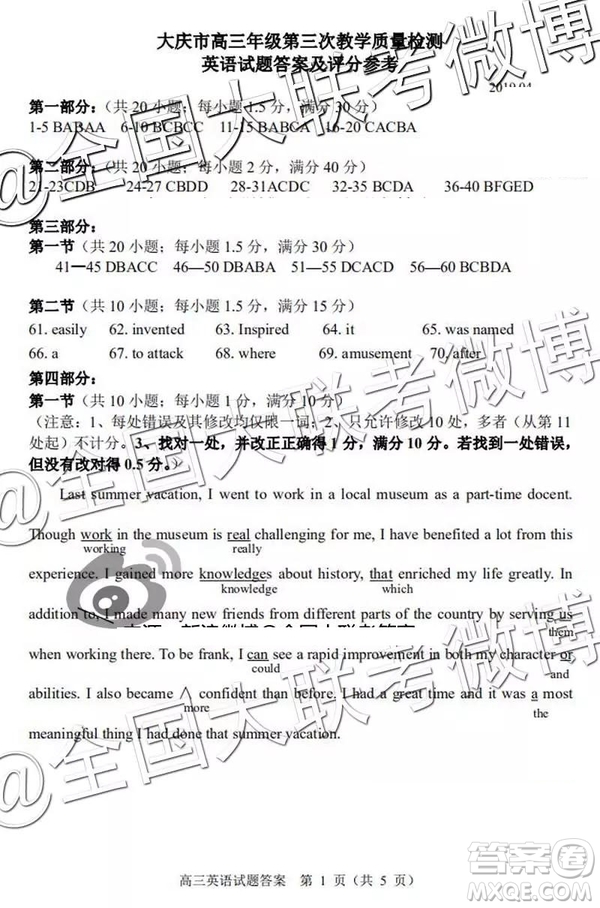 大庆市高三年级第三次教学质量检测
英语试题答案及评分参考
2019.04
第一部分：（共 20 小题；每小题 1.5 分，满分 30 分）
1-5 BABAA 6-10 BCBCC 11-15 BABCA 16-20 CACBA
第二部分：（共 20 小题；每小题 2 分，满分 40 分）
21-23CDB 24-27 CBDD 28-31ACDC 32-35 BCDA 36-40 BFGED
第三部分：
第一节（共 20 小题；每小题 1.5 分，满分 30 分）
41—45 DBACC 46—50 DBABA 51—55 DCACD 56—60 BCBDA
第二节（共 10 小题；每小题 1.5 分，满分 15 分）
61. easily 62. invented 63. Inspired 64. it 65. was named
66. a 67. to attack 68. where 69. amusement 70. after
第四部分：
第一节（共 10 小题；每小题 1 分，满分 10 分）
（注意：1、每处错误及其修改均仅限一词；2、只允许修改 10 处，多者（从第 11
处起）不计分。3、找对一处，并改正正确得 1 分，满分 10 分。若找到一处错误，
但没有改对得 0.5 分。）
Last summer vacation, I went to work in a local museum as a part-time docent.
Though work in the museum is real challenging for me, I have benefited a lot from this
working really
experience. I gained more knowledges about history, that enriched my life greatly. In
knowledge which
addition to, I made many new friends from different parts of the country by serving us
them
when working there. To be frank, I can see a rapid improvement in both my character or
could and
abilities. I also became ∧ confident than before. I had a great time and it was a most
more the
meaningful thing I had done that summer vacation.
高三英语试题答案 第 1 页（共 5 页）
@全国大联考微博
@全国大联考微博
@全国大联考微博
答案圈
MXQE.COM